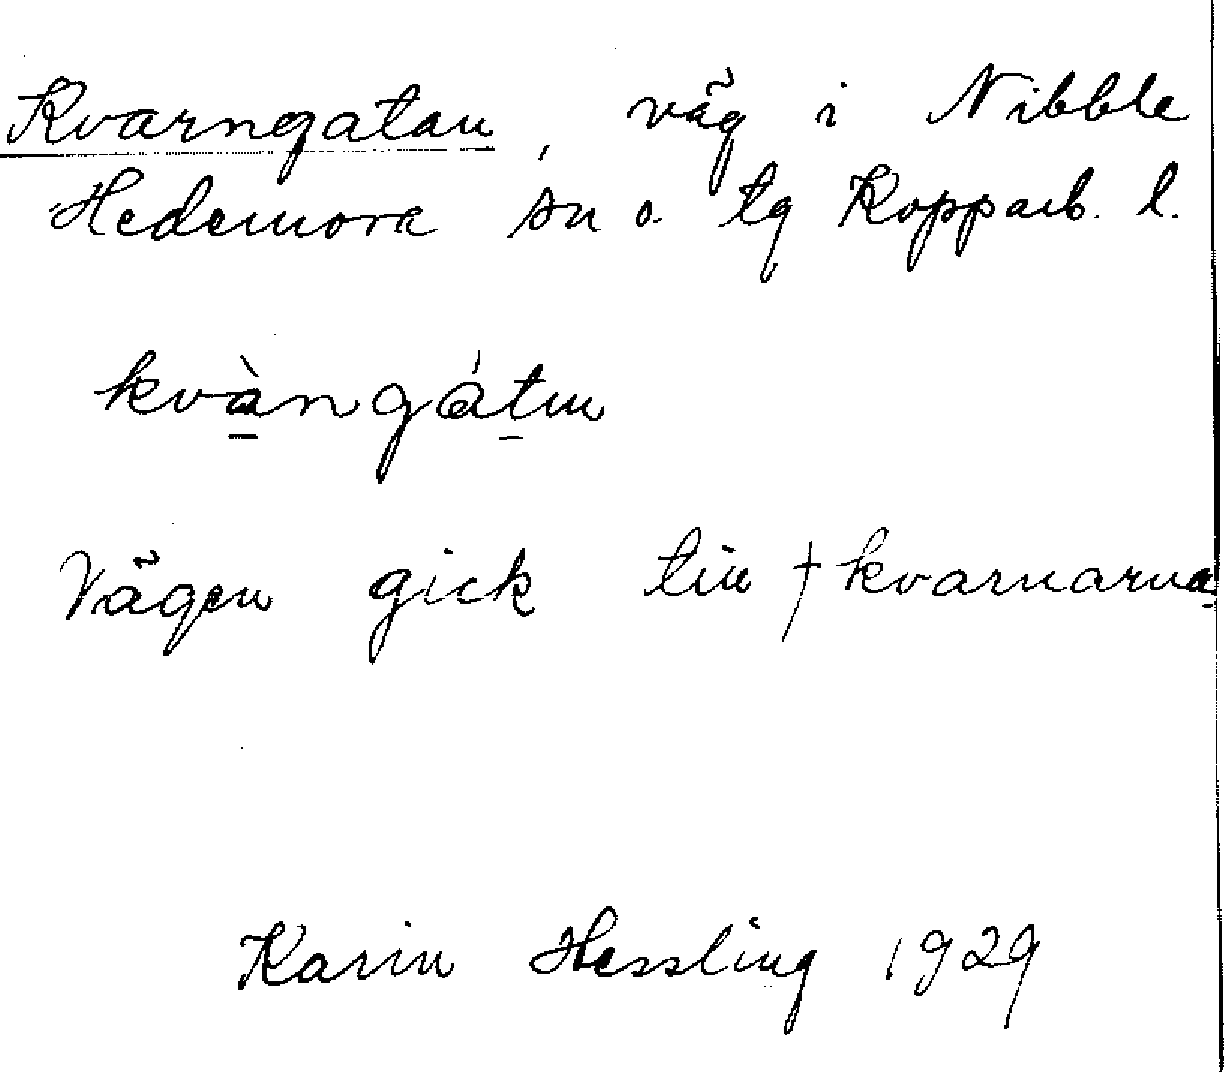 Kvarngatan, väg i Nibble
Hedemora sn o. tg Kopparb. l.
kvàngátn
Vägen gick till † kvarnarna
Karin Hessling 1929